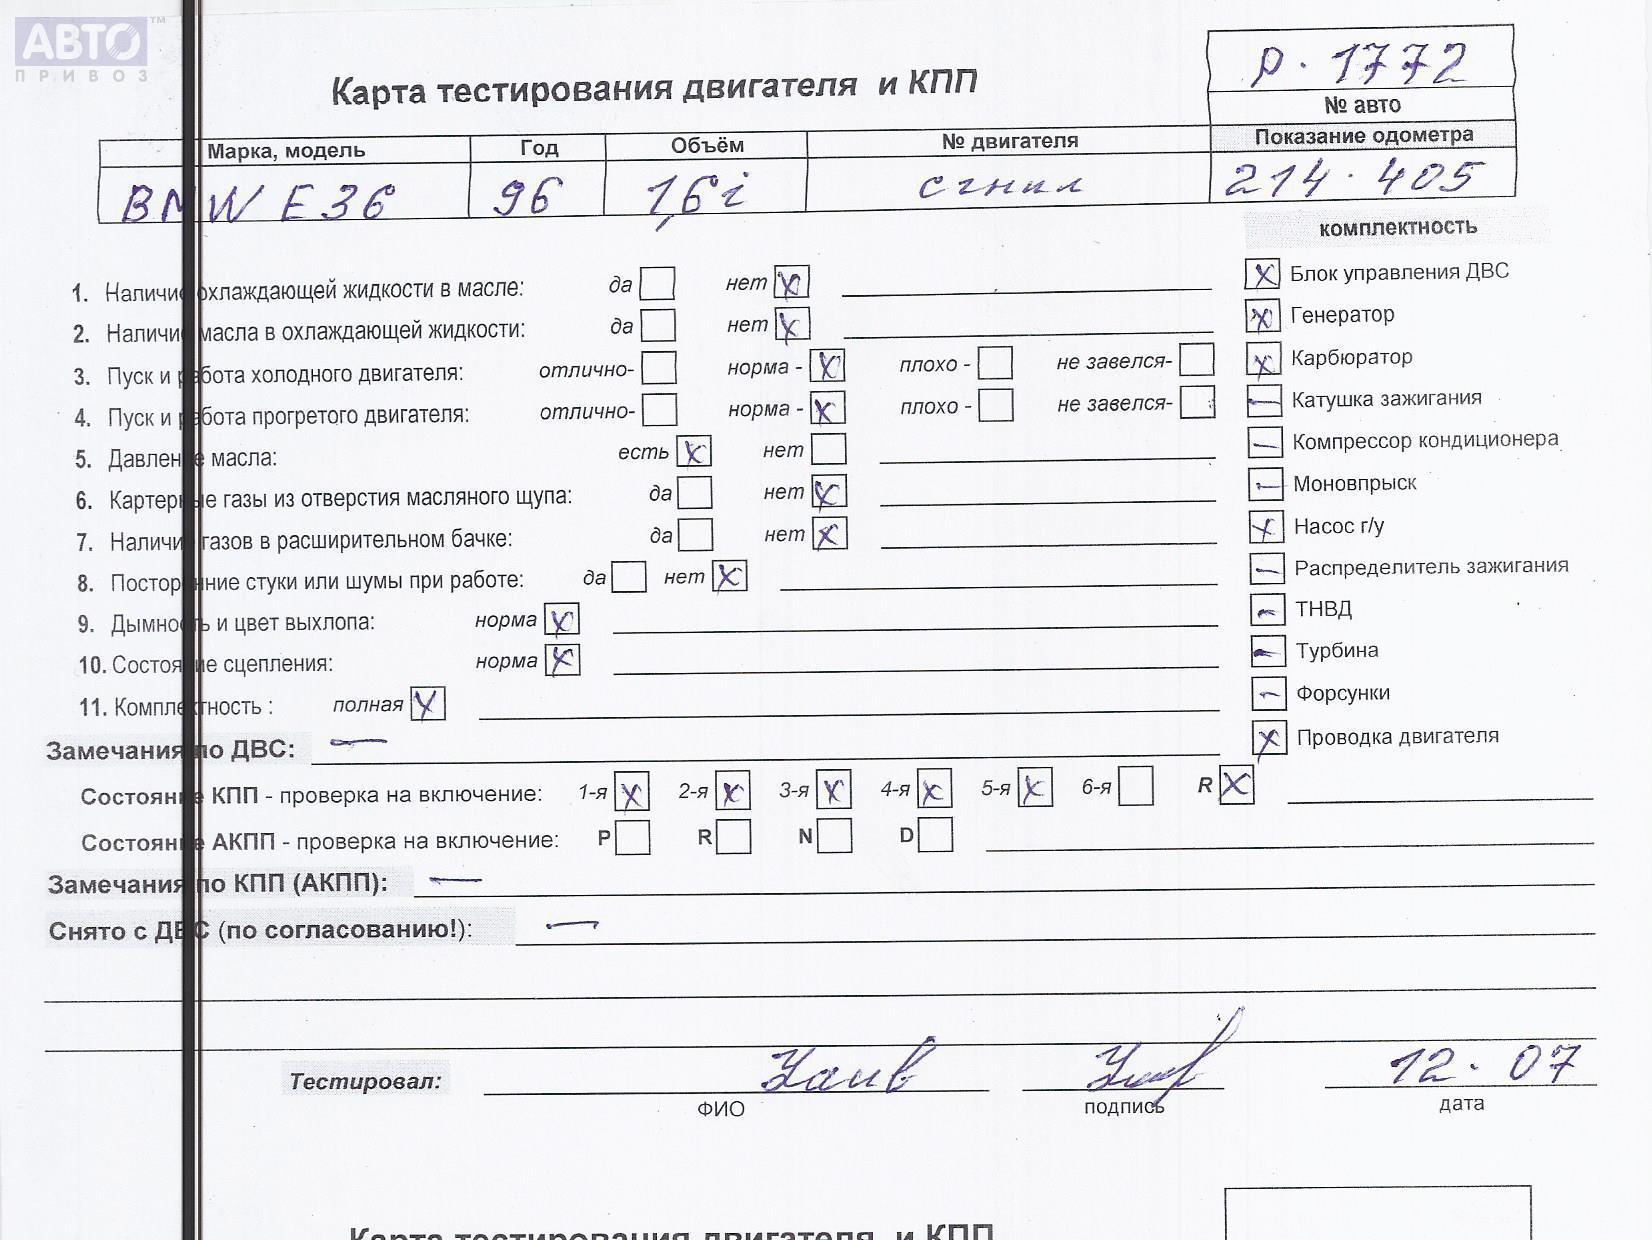 АВТО™
ПРИВОЗ
Карта тестирования двигателя и КПП
р. 1772
№ авто
Марка, модель Год Объём № двигателя Показание одометра
BMW E36 96 1,6i сгнил 214.405
комплектность
1. Наличие охлаждающей жидкости в масле: да нет X
Блок управления ДВС X
2. Наличие масла в охлаждающей жидкости: да нет X
Генератор X
3. Пуск и работа холодного двигателя: отлично- норма - X плохо - не завелся-
Карбюратор X
4. Пуск и работа прогретого двигателя: отлично- норма - X плохо - не завелся-
Катушка зажигания —
5. Давление масла: есть X нет
Компрессор кондиционера —
6. Картерные газы из отверстия масляного щупа: да нет X
Моновпрыск —
7. Наличие газов в расширительном бачке: да нет X
Насос г/у X
8. Посторонние стуки или шумы при работе: да нет X
Распределитель зажигания —
9. Дымность и цвет выхлопа: норма X
ТНВД —
10. Состояние сцепления: норма X
Турбина —
11. Комплектность : полная X
Форсунки —
Замечания по ДВС: —
Проводка двигателя X
Состояние КПП - проверка на включение: 1-я X 2-я X 3-я X 4-я X 5-я X 6-я R X
Состояние АКПП - проверка на включение: P R N D
Замечания по КПП (АКПП): —
Снято с ДВС (по согласованию!): —
Тестировал: 12.07
ФИО подпись дата
Карта тестирования двигателя и КПП